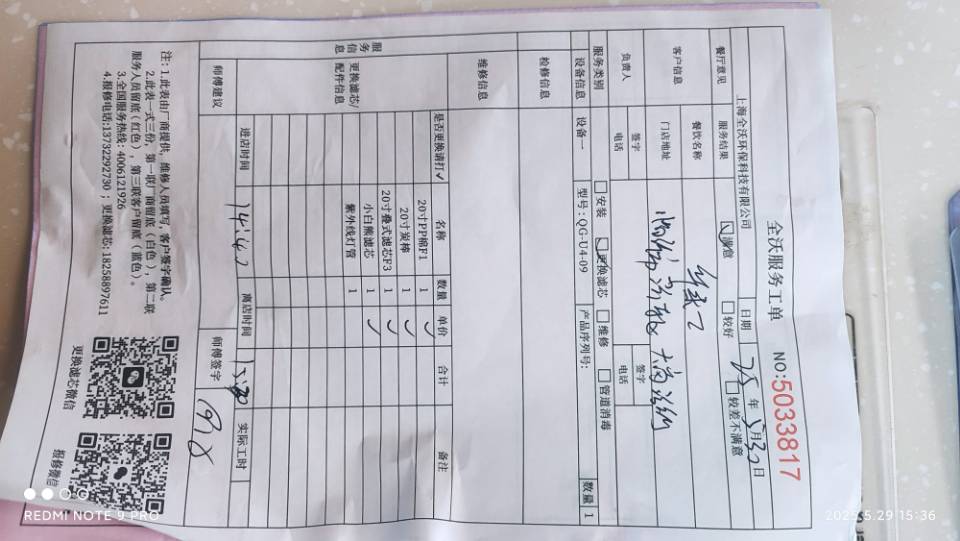 全沃服务工单
NO:5033817
上海全沃环保科技有限公司 日期 25 年 5月30日
餐厅意见 服务结果 满意 较好 较差不满意
客户信息 餐饮名称
门店地址
负责人 签字 签字
电话 电话
服务类别 安装 更换滤芯 维修 管道消毒
设备信息 设备一 型号:QG-U4-09 产品序列号: 数量 1
检修信息
维修信息
服务信息
更换滤芯/配件信息 是否更换请打✓ 名称 数量 单价 合计 备注
20寸PP棉F1 1 ✓
20寸炭棒 1 ✓
20寸叠式滤芯F3 1 ✓
小白熊滤芯 1 ✓
紫外线灯管 1
师傅建议 进店时间 离店时间 实际工时
师傅签字
注:1.此表由厂商提供,维修人员填写,客户签字确认。
2.此表一式三份,第一联厂商留底(白色),第二联
服务人员留底(红色),第三联客户留底(蓝色)。
3.全国服务热线:4006121926
4.报修电话:13732292730;更换滤芯:18258897611
更换滤芯微信 报修微信
REDMI NOTE 9 PRO
2025.5.29 15:36